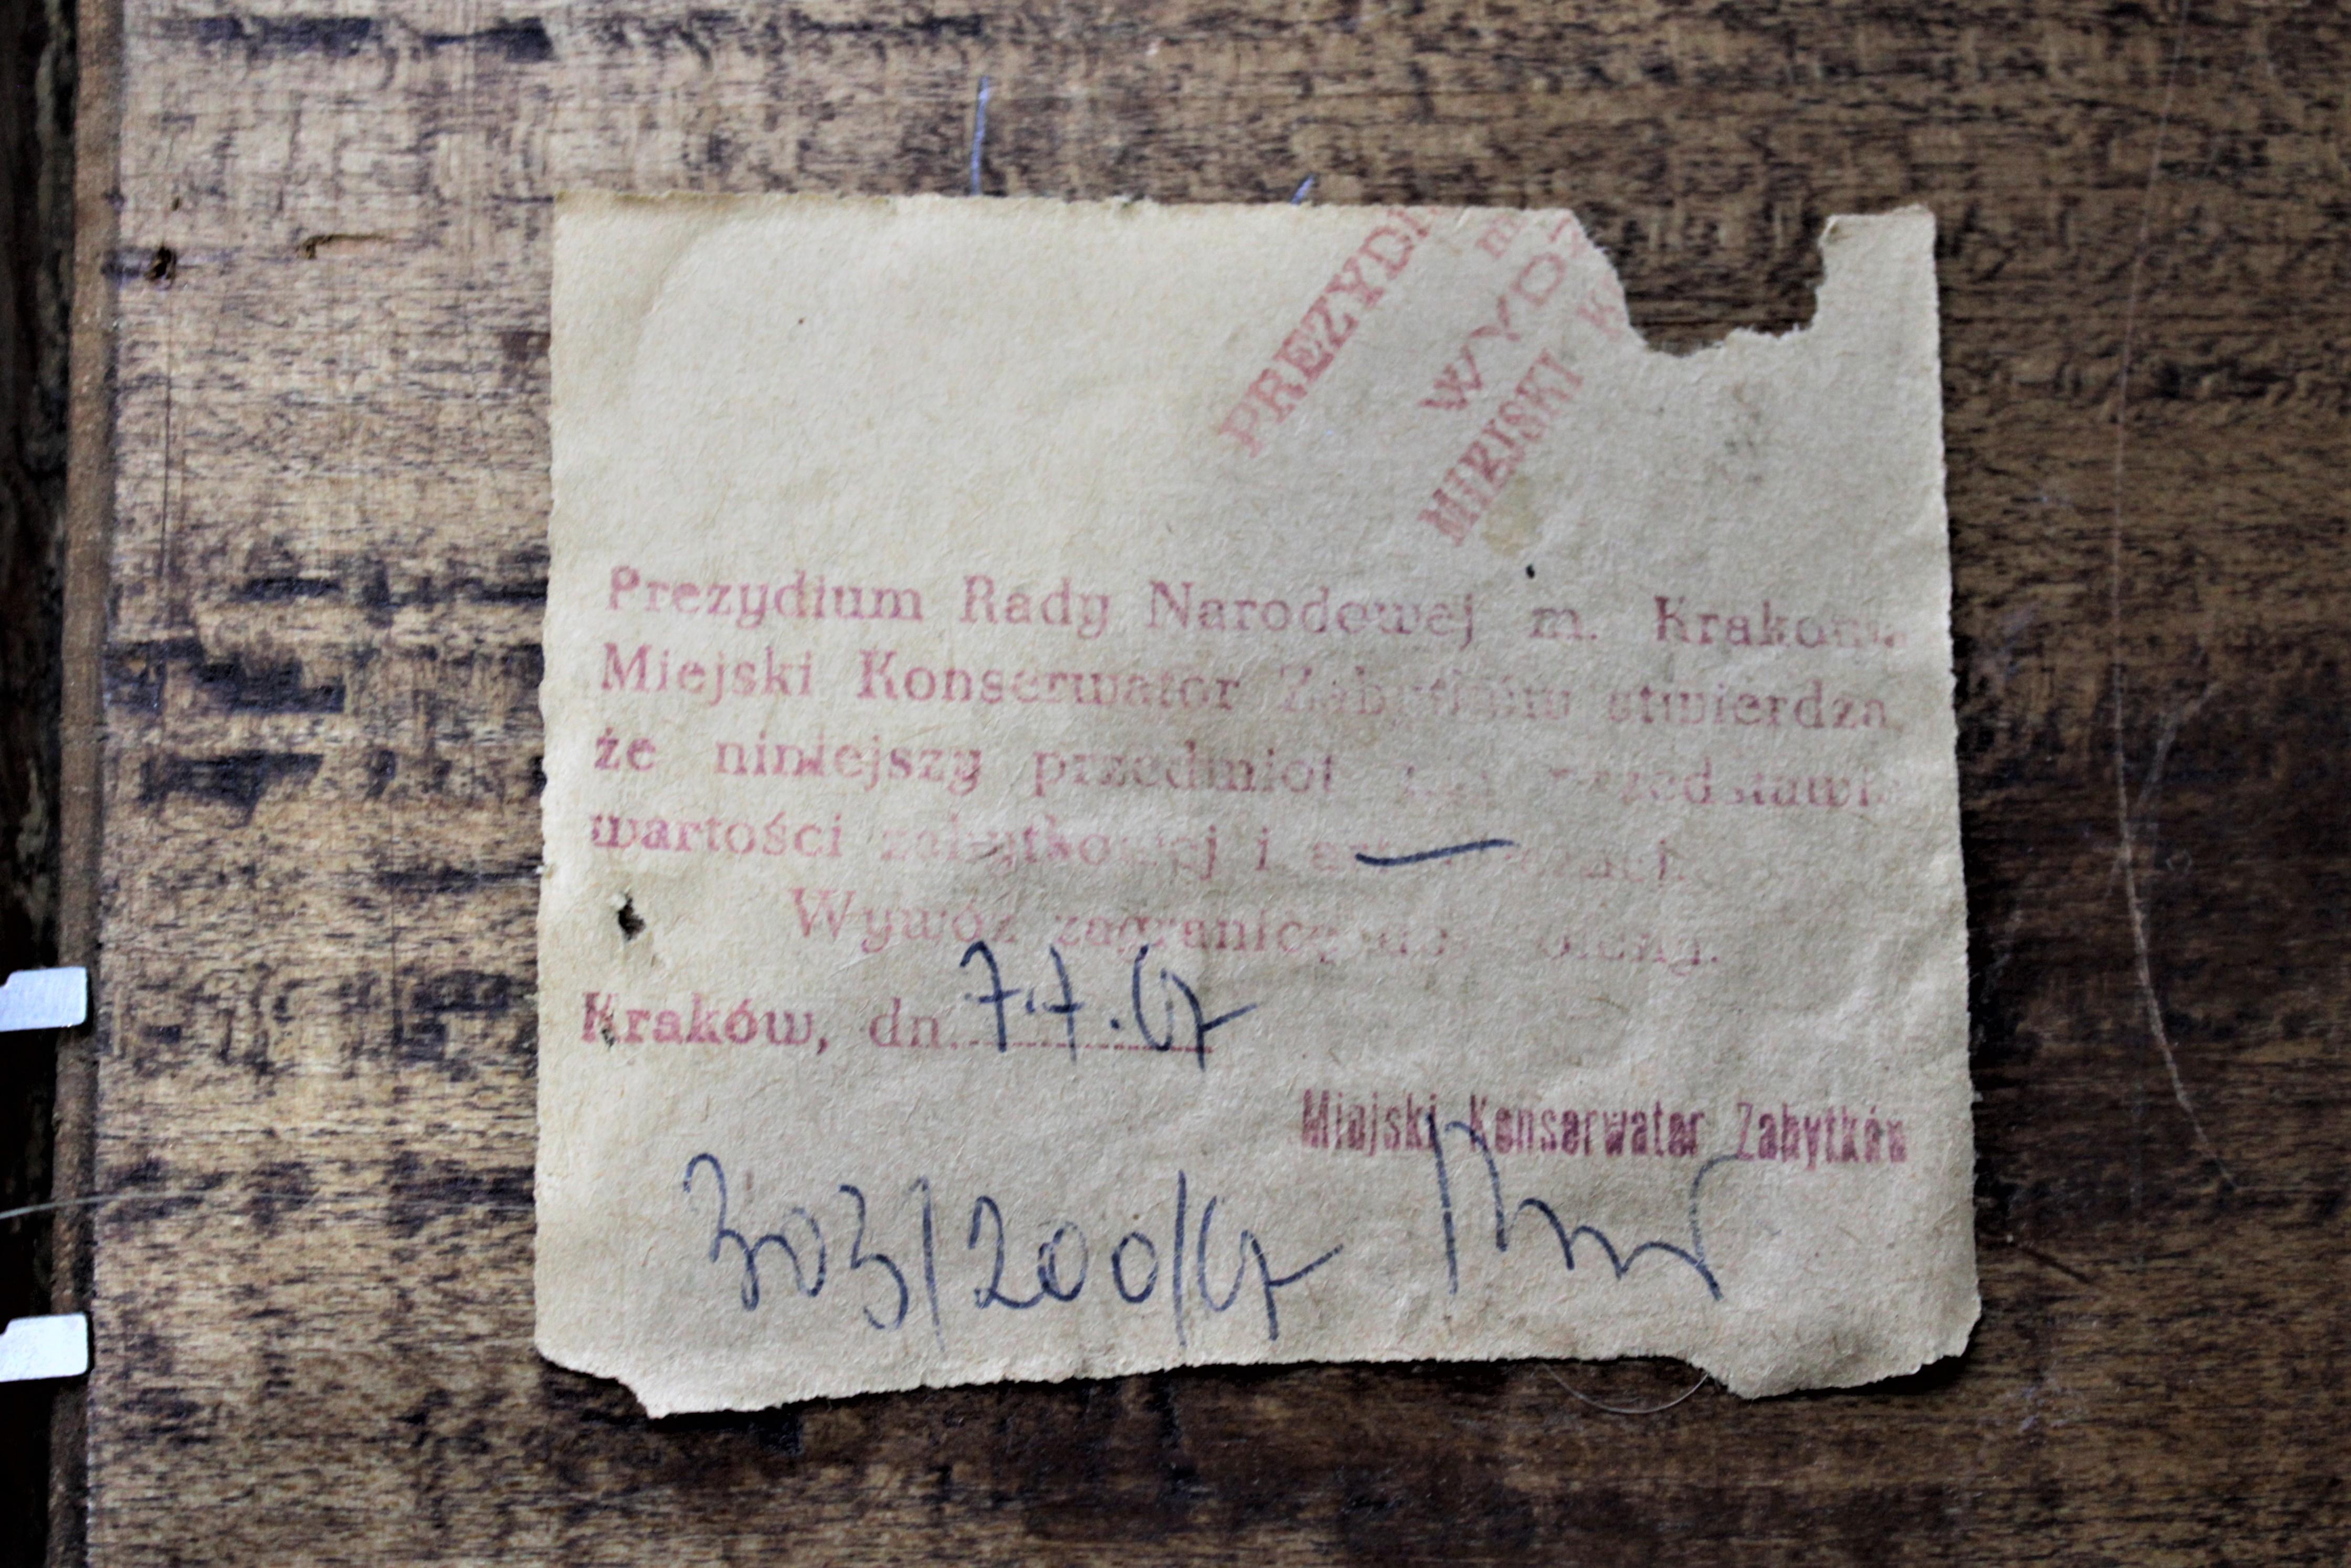 PREZYDI
m.
WYDZ
MIEJSKI K
Prezydium Rady Narodowej m. Krakowa
Miejski Konserwator Zabytków stwierdza,
że niniejszy przedmiot przedstawia
wartości zabytkowej i
Wywóz zagranicę
Kraków, dn. 7.7.67
Miejski Konserwator Zabytków
303/200/67